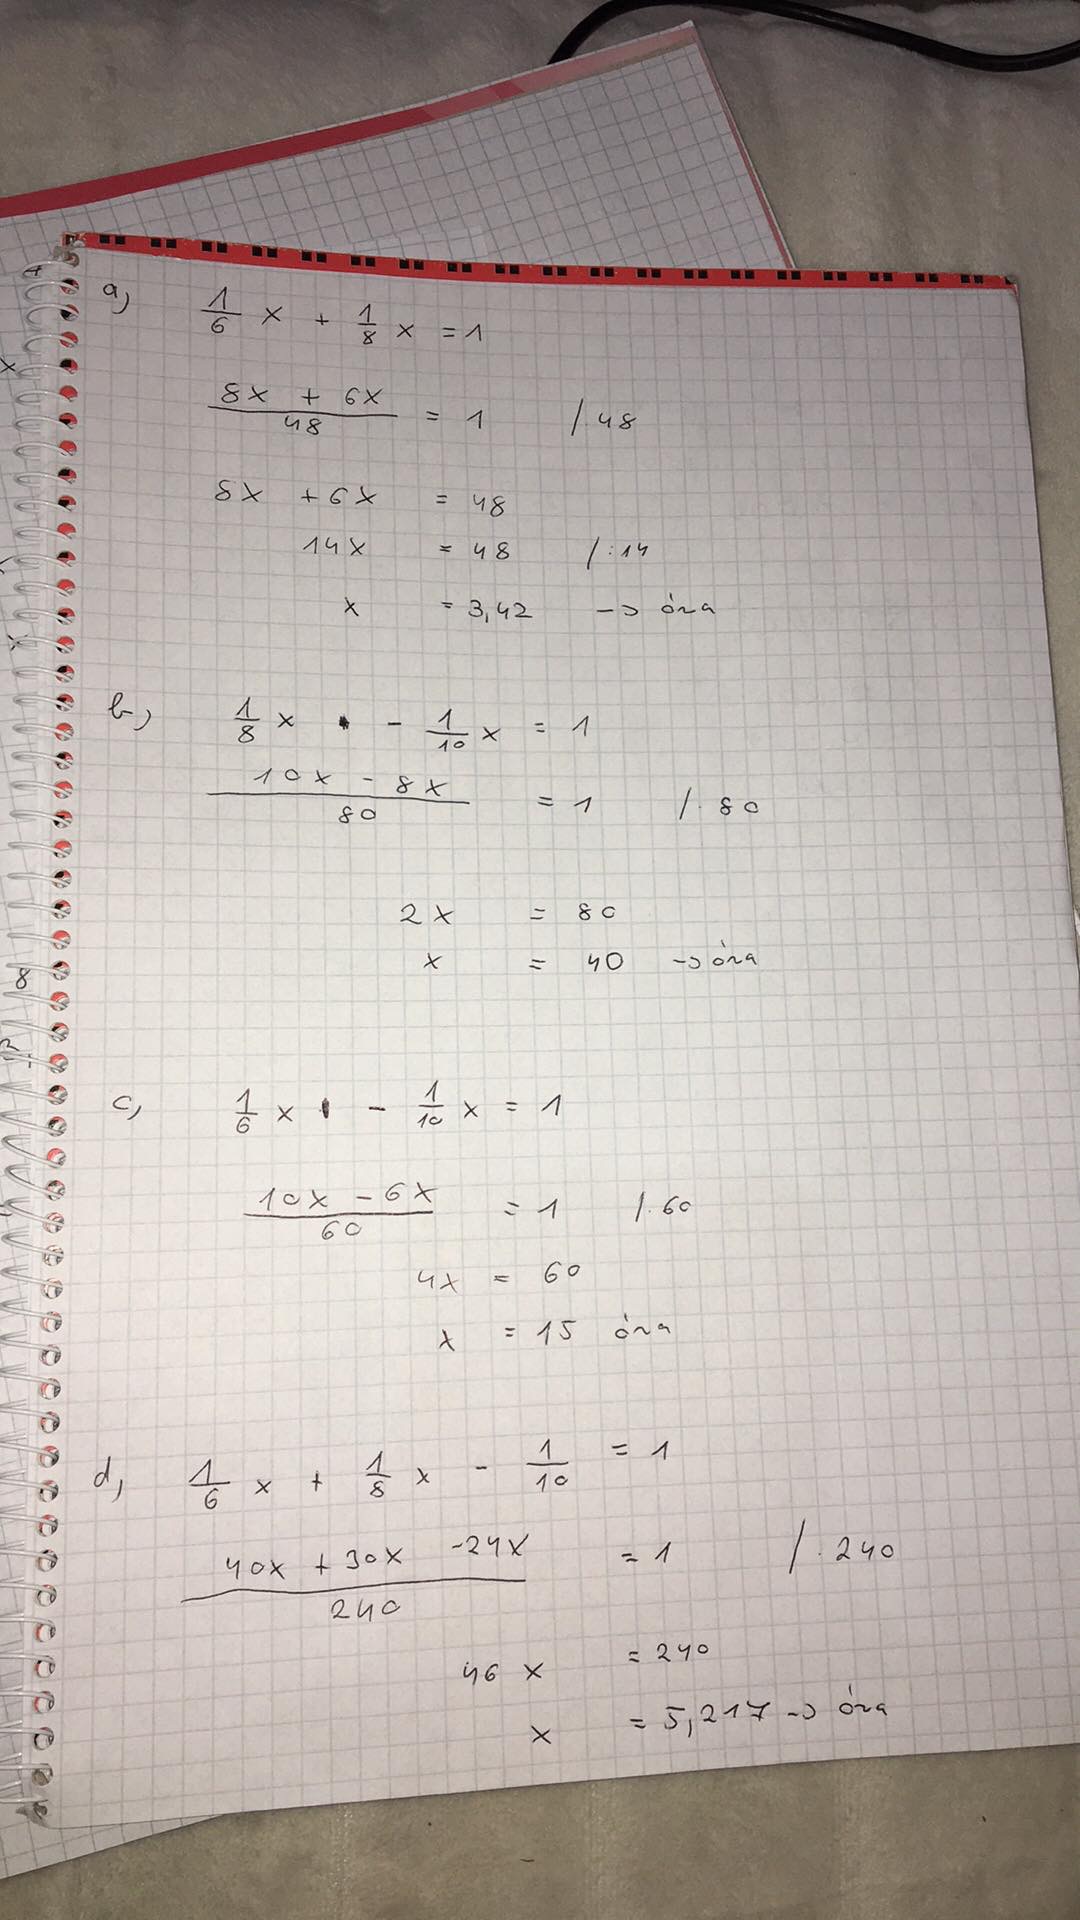 a) 1/6 x + 1/8 x = 1
(8x + 6x)/48 = 1 /·48
8x + 6x = 48
14x = 48 /:14
x = 3,42 -> óra
b) 1/8 x - 1/10 x = 1
(10x - 8x)/80 = 1 /·80
2x = 80
x = 40 -> óra
c) 1/6 x - 1/10 x = 1
(10x - 6x)/60 = 1 /·60
4x = 60
x = 15 óra
d) 1/6 x + 1/8 x - 1/10 = 1
(40x + 30x - 24x)/240 = 1 /·240
46x = 240
x = 5,217 -> óra